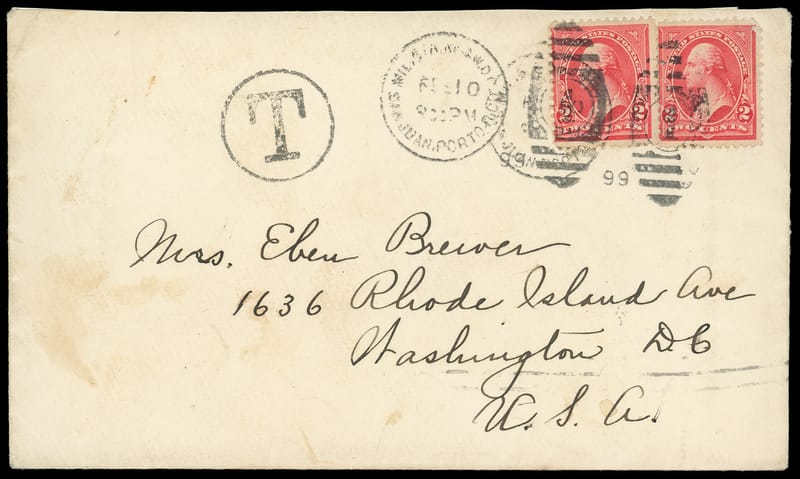 T
MIL. STA. No.
FEB 10
PM
SAN JUAN. PORTO RICO
99
UNITED STATES POSTAGE
2 2
TWO CENTS
UNITED STATES POSTAGE
2 2
TWO CENTS
Mrs. Eben Brewer
1636 Rhode Island Ave
Washington D.C
U. S. A.